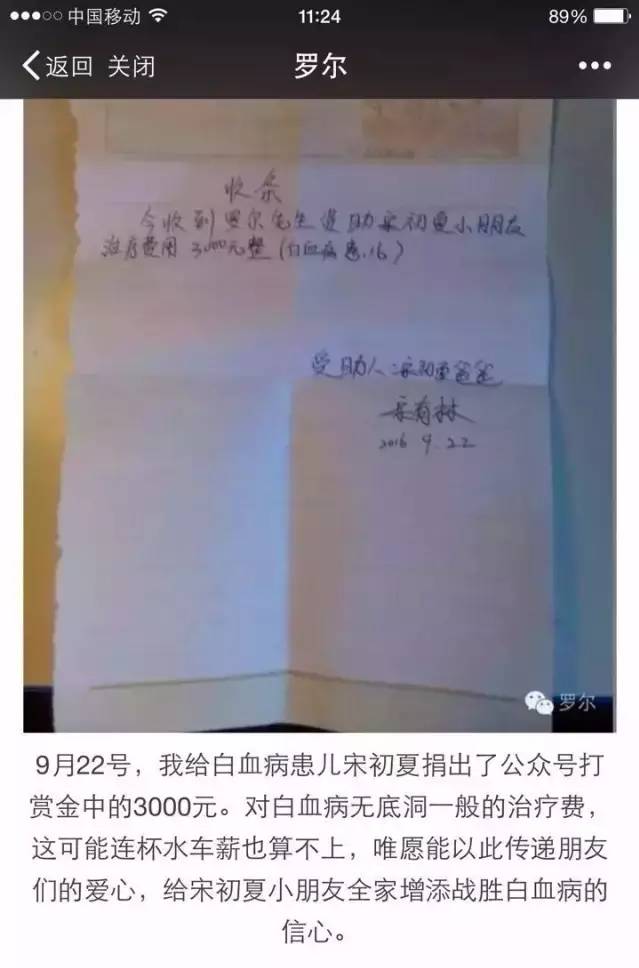 中国移动 11:24 89%
返回 关闭 罗尔
收条
今收到罗尔先生资助宋初夏小朋友
治疗费用3000元整(白血病患儿)
受助人:宋初夏爸爸
宋有林
2016 9.22
罗尔
9月22号，我给白血病患儿宋初夏捐出了公众号打
赏金中的3000元。对白血病无底洞一般的治疗费，
这可能连杯水车薪也算不上，唯愿能以此传递朋友
们的爱心，给宋初夏小朋友全家增添战胜白血病的
信心。